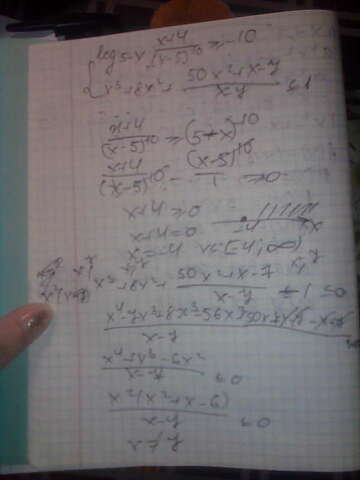 log 5-x (x+4)/(x-5)^10 ≥ -10
{ x^3+8x^2+ (50x^2+x-7)/(x-7) ≤ 1
(x+4)/(x-5)^10 ≥ (5-x)^10
(x+4)/(x-5)^10 - (x-5)^10/1 ≥ 0
x+4 ≥ 0
x+4=0
x=-4 x∈[-4; ∞) -4 x
x^3+8x^2+ (50x^2+x-7)/(x-7) - 1 ≤ 0
(x^4-7x^3+8x^3-56x^2+50x^2+x-7-x+7)/(x-7) ≤ 0
(x^4+x^3-6x^2)/(x-7) ≤ 0
x^2(x^2+x-6)/(x-7) ≤ 0
x≠7